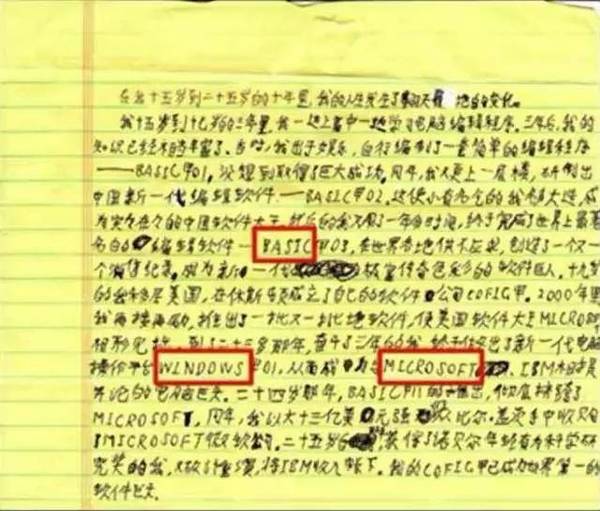 在我十五岁到二十五岁的十年里,我的人生发生了翻天 地的变化。
我十五岁到十七岁的三年里,我一边上高中一边学习电脑编辑程序。三年后,我的
知识已经相当丰富了。当时,我出于娱乐,自行编制了一套简单的编辑程序
——BASIC甲01,没想到取得了巨大成功。同年,我又更上一层楼,研制出
中国新一代编辑软件——BASIC甲02,这使小有名气的我名声大造,成
为实实在在的中国软件大王。然后的我又用了一年的时间,终于完成了世界上最著
名的 编辑软件—BASIC甲03,在世界各地供不应求,创造了一个又一
个销售纪录。成为新一代 极富传奇色彩的软件巨人。十九岁
的我移居美国,在休斯顿成立了自己的软件公司COFIG甲。2000年里
我再接再励,推出了一批又一批地软件,使美国软件大王MICROSOF
相形见拙,到了二十三岁那年,奋斗了三年的我,终于推出了新一代电脑
操作平台WINDOWS甲01,从而成 与MICROSOFT IBM相提
并论的电脑巨头。二十四岁那年,BASIC甲11的推出,彻底挤跨了
MICROSOFT,同年,我以大十三亿美元强 比尔·盖茨手中收购
了MICROSOFT微软公司。二十五岁 获得了诺贝尔年轻有为科学研
究奖的我,大胆计算,将IBM收入帐下。我的COFIG甲已成为世界第一的
软件巨头。